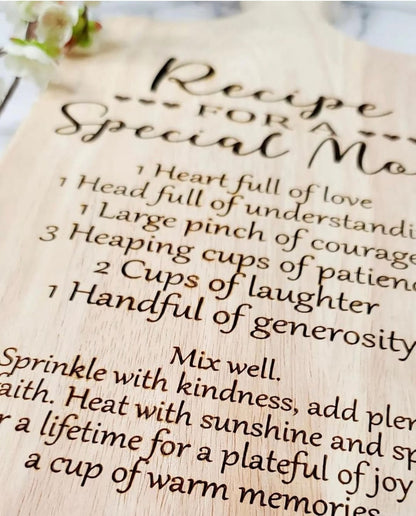 Recipe
FOR A
Special Mo
1 Heart full of love
1 Head full of understandi
1 Large pinch of courage
3 Heaping cups of patien
2 Cups of laughter
1 Handful of generosity
Mix well.
Sprinkle with kindness, add plen
aith. Heat with sunshine and sp
r a lifetime for a plateful of joy
a cup of warm memories